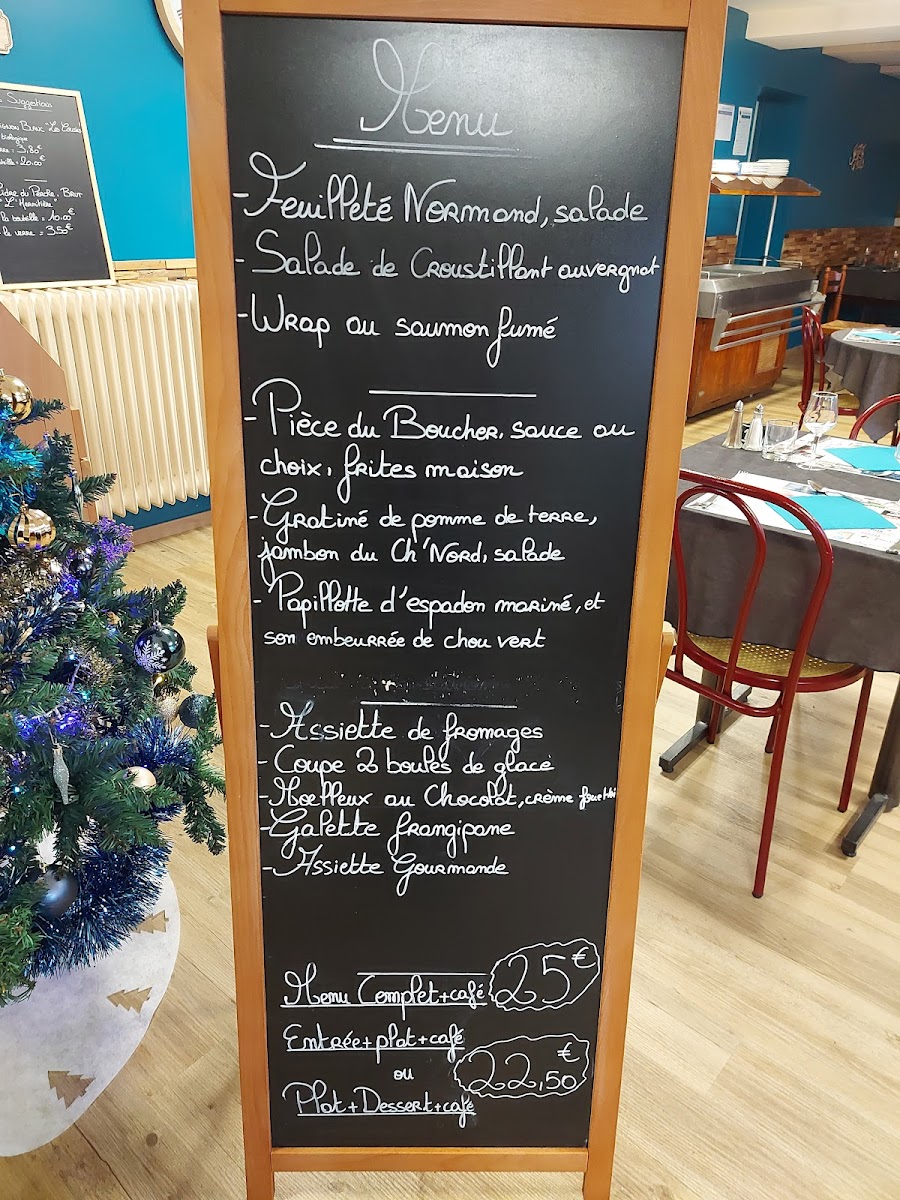 Suggestions
biologique
= 3,80€
= 20,00€
Cidre du Perche, Brut
"L'Hermitière"
la bouteille = 10.00€
le verre = 3.50€
Menu
- Feuilleté Normand, salade
- Salade de Croustillant auvergnat
- Wrap au saumon fumé
- Pièce du Boucher, sauce au
choix, frites maison
- Gratiné de pomme de terre,
jambon du Ch'Nord, salade
- Papillotte d'espadon mariné, et
son embeurrée de chou vert
- Assiette de fromages
- Coupe 2 boules de glace
- Moelleux au Chocolat, crème
- Galette frangipane
- Assiette Gourmande
Menu Complet+café 25€
Entrée+plat+café
ou 22,50€
Plat+Dessert+café